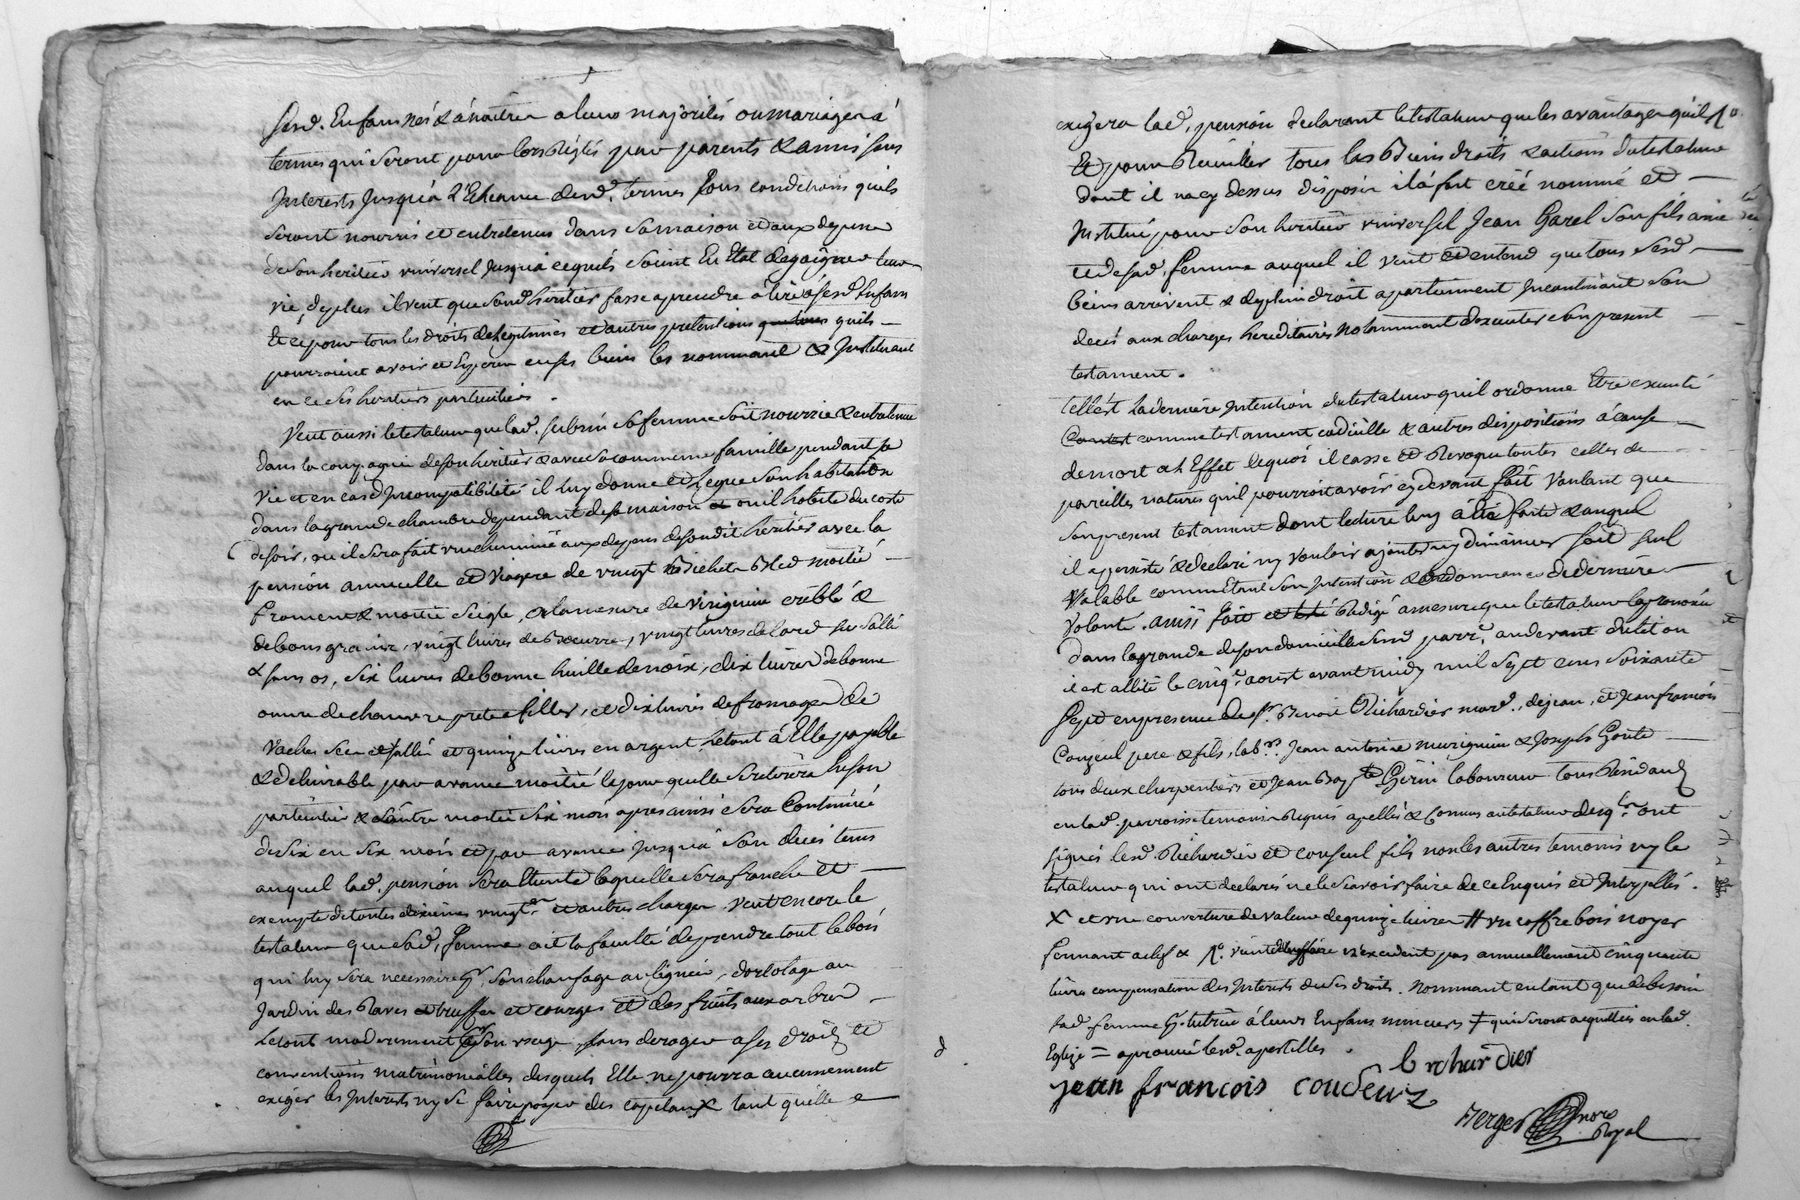 sesd. Enfans nés & à naitre a leurs majorités ou mariages à
termes qui seront pour lors Réglés par parents & amis sans
Interests Jusqu'à l'Echeance desd. termes sous conditions quils
seront nourris et entretenus dans sa maison et aux depens
de son heritier universel Jusqu'à ce quils soient En Etat de gaigner leur
vie, de plus il veut que sond. heritier fasse aprendre à lire à sesd. Enfans
Et ce pour tous les droits de legitimes et autres pretentions quils
pourroient avoir et Esperer en ses biens les nommant & Instituant
en ce ses heritiers particuliers.
Veut aussi le testateur que lad. sa femme soit nourrie & entretenue
dans la compagnie de son heritier & avec sa commune famille pendant sa
vie et en cas d'Incompatibilité il luy donne et legue son habitation
dans la grande chambre dependant de sa maison ou il habite du coste
de soir, ou il sera fait une cheminée aux depens de sondit heritier avec la
pension annuelle et viagere de vingt Bichets Bled moitié
froment & moitié seigle, à la mesure de virignieu criblé &
de bons grains, vingt livres de Beurre, vingt livres de lard sallé
& sans os, six livres de bonne huille de noix, dix livres de bonne
œuvre de chanvre prete a filler, et dix livres de fromage de
vaches sec et sallé et quinze livres en argent, le tout à Elle payable
& delivrable par avance moitié le jour quelle se retirera en son
particulier & l'autre moitié six mois apres ainsi sera Continué
de six en six mois et par avance jusqu'à son deces tems
auquel lad. pension sera Eteinte laquelle sera franche et
exempte de toutes dixiemes vingt. et autres charges. veut encore le
testateur que sad. femme ait la faculté de prendre tout le bois
qui luy sera necessaire pr. son chaufage au lignier, dortolage au
Jardin des Raves & truffes et courges et des fruits aux arbres
le tout moderement pr son usage, sans deroger a ses droits et
conventions matrimonialles desquels Elle ne pourra aucunement
exiger les Interests ny se faire payer des capitaux tant quelle
exigera lad. pension declarant le testateur que les avantages quil
Et pour Recueillir tous les Biens droits & actions du testateur
dont il na cy dessus disposé il à fait créé nommé et
Institué pour son heritier universel Jean Garel son fils ainé
et de sad. femme auquel il veut et entend que tous sesd.
biens arrivent & de plein droit apartiennent Incontinant son
decés aux charges hereditaires notamment d'executer son present
testament.
telle est la derniere Intention du testateur quil ordonne Etre executé
comme testament codicille & autres dispositions à cause
de mort a l'Effet dequoi il casse et Revoque toutes celles de
pareilles natures quil pourroit avoir cy devant fait voulant que
son present testament dont lecture luy à été faite & auquel
il a persisté & declaré ny vouloir ajouter ny diminuer soit seul
Valable comme étant son Intention & ordonnance de derniere
volonté. ainsi fait Redigé a mesure que le testateur la prononcé
dans la grande de son domicille sud. parr. au devant du lit ou
il est allité le cinq. aoust avant midy mil sept cens soixante
sept en presence de sr. Benoit Richardier mard., de jean, et Jean francois
Couzeul pere & fils, labrs. Jean antoine murigneu & Joseph Goute
tous deux charpentiers et Jean Bapte. Gerin laboureur tous Residants
en lad. parroisse temoins Requis apellés & Connus au testateur desqls. ont
signés lesd. Richardier et couseul fils non les autres temoins ny le
testateur qui ont declarés ne le scavoir faire de ce Enquis et Interpellés.
X et une couverture de valeur de quinze livres # un coffre bois noyer
fermant a clef & n'excedent pas annuellement cinquante
livres compensation des Interests de ses droits. Nommant en tant que de besoin
sad. femme pr. tutrice à leurs Enfans mineurs ‡ qui seront acquittées en lad.
Eglize = aprouvé lesd. apostilles.
b richardier
jean francois couseux
Verger nore
Royal